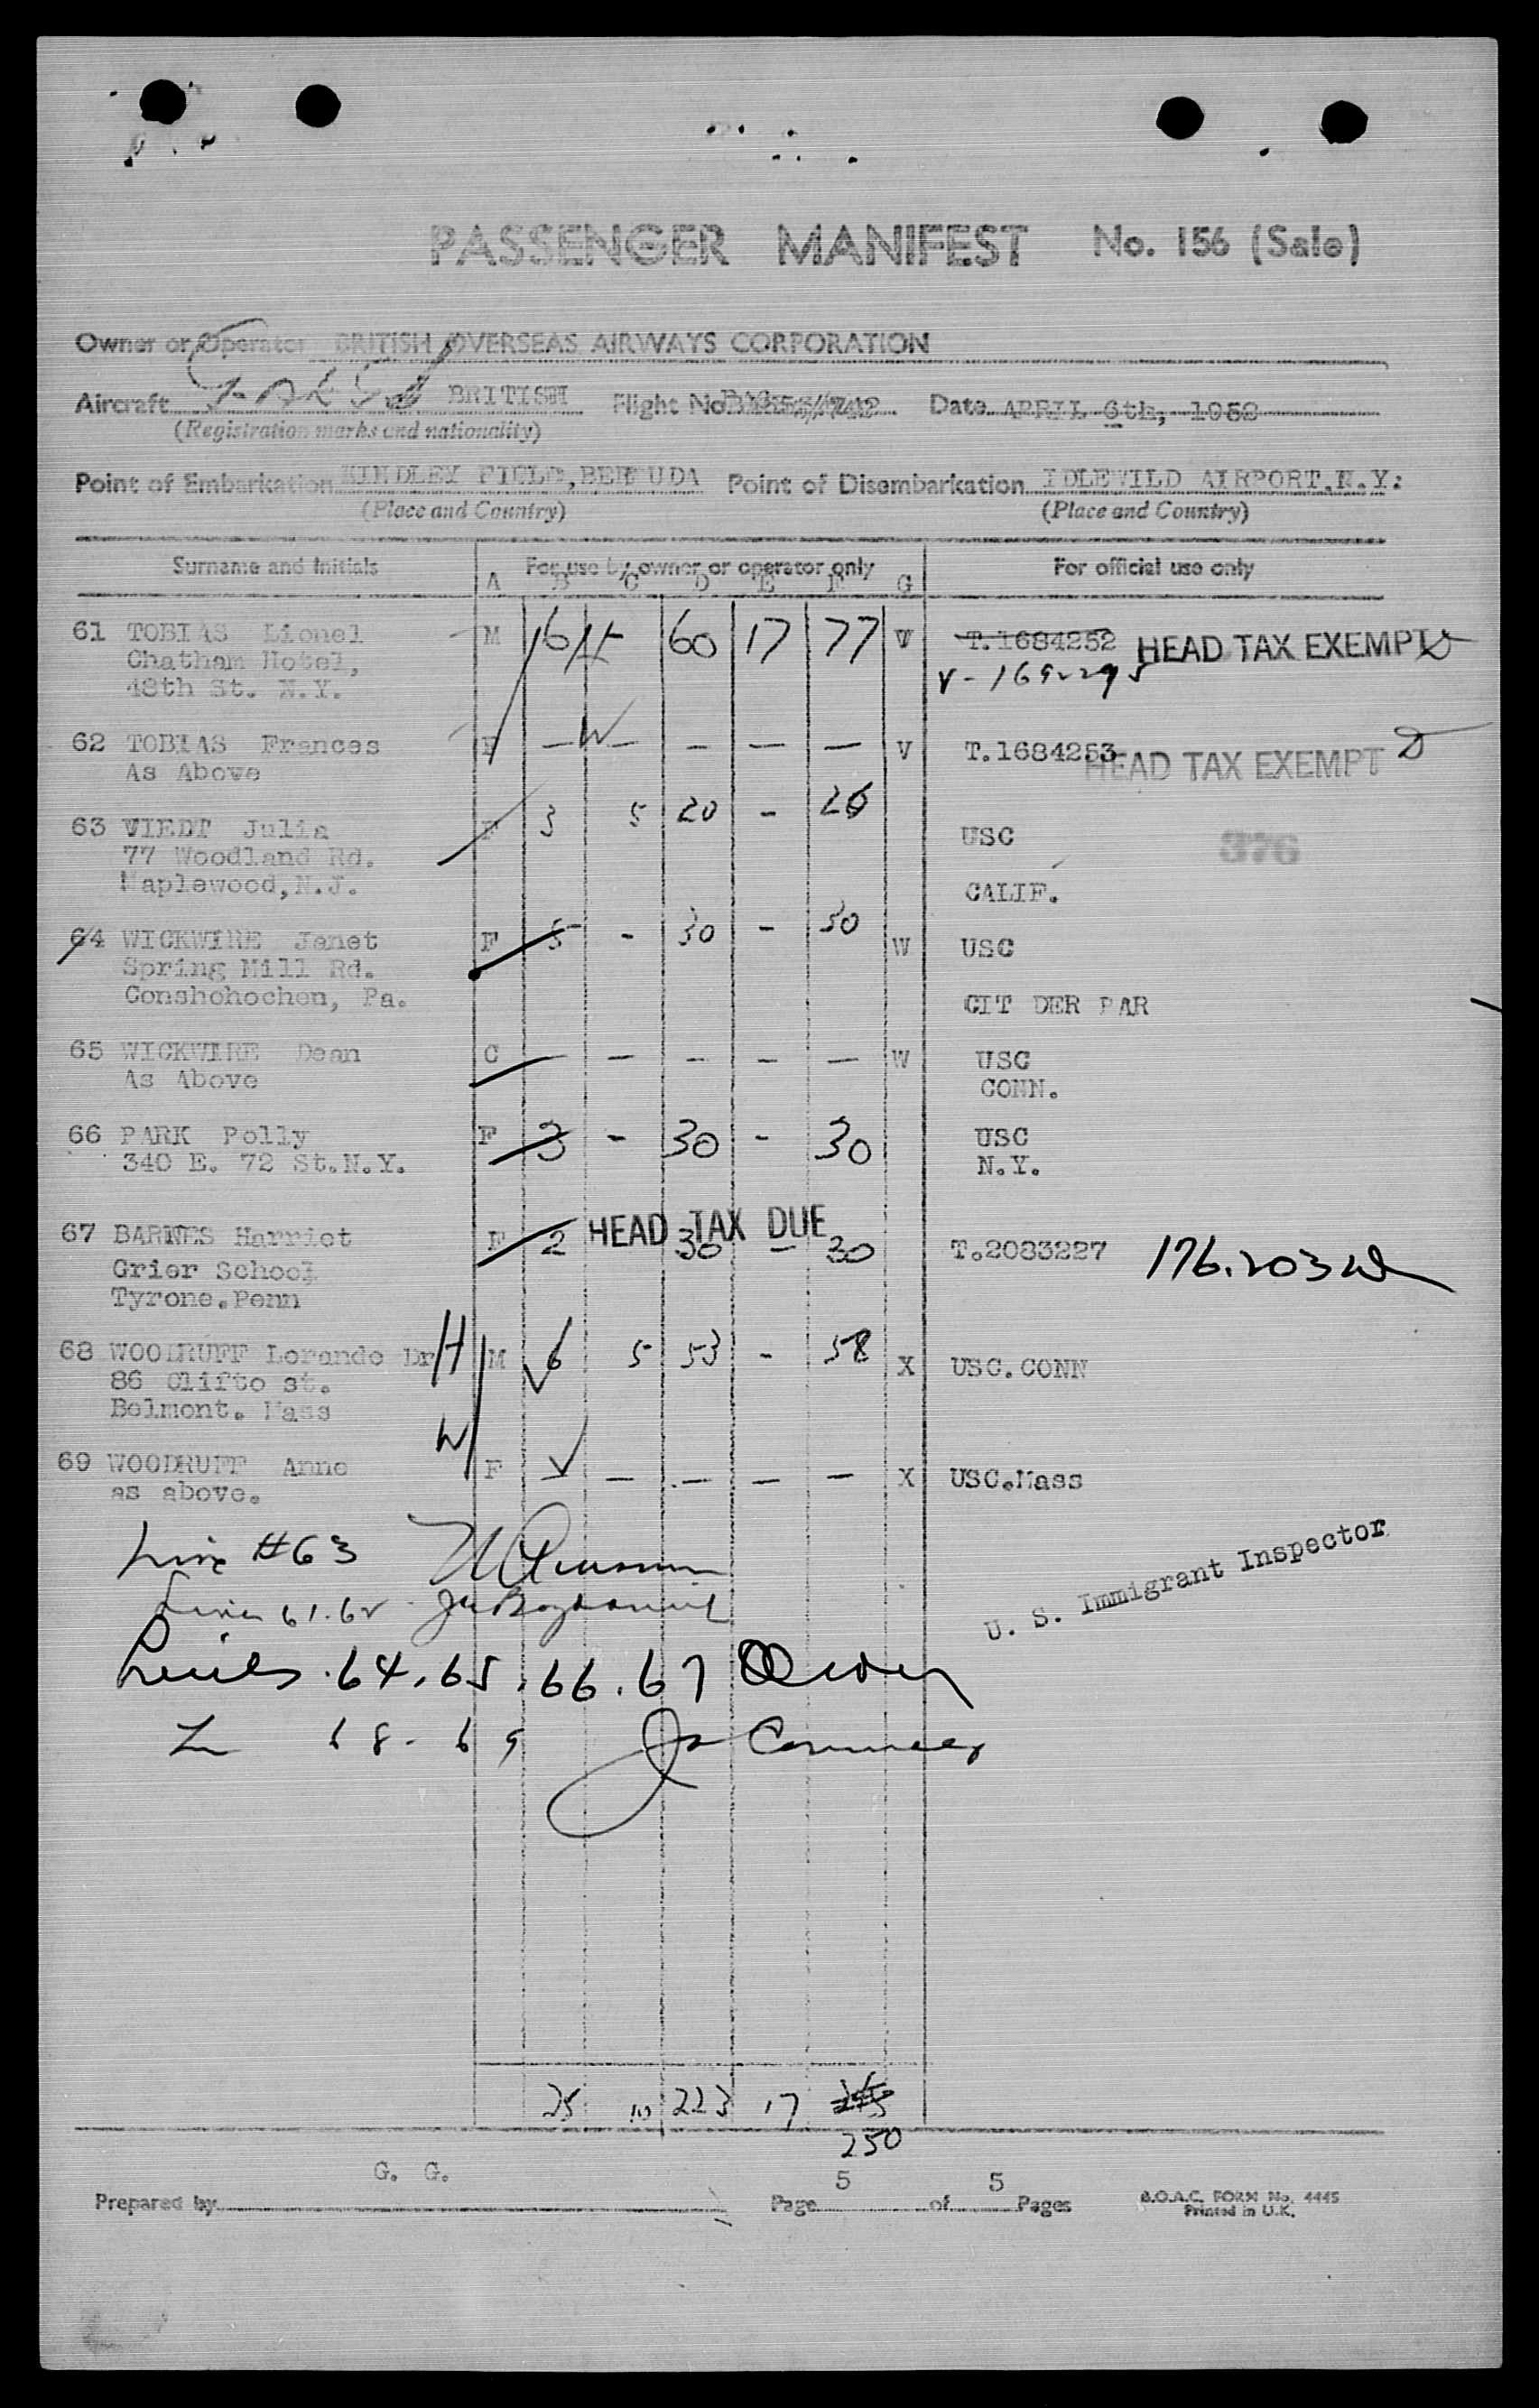 PASSENGER MANIFEST No. 156 (Sale)
Owner or Operator BRITISH OVERSEAS AIRWAYS CORPORATION
Aircraft BRITISH Flight No. Date APRIL 6th, 1952
(Registration marks and nationality)
Point of Embarkation KINDLEY FIELD, BERMUDA Point of Disembarkation IDLEWILD AIRPORT, N.Y:
(Place and Country) (Place and Country)
Surname and Initials For use by owner or operator only For official use only
A B C D E F G
61 TOBIAS Lionel M 6 H 60 17 77 V T.1684252 HEAD TAX EXEMPT
Chatham Hotel,
48th St. N.Y.
62 TOBIAS Frances F — W — — — — V T.1684253 HEAD TAX EXEMPT
As Above
63 VIEDT Julia F 3 5 20 - USC 376
77 Woodland Rd.
Maplewood, N.J. CALIF.
64 WICKWIRE Janet F 5 - 30 - 30 W USC
Spring Mill Rd.
Conshohochen, Pa. CIT DER PAR
65 WICKWIRE Dean C — — — — — W USC
As Above CONN.
66 PARK Polly F 3 - 30 - 30 USC
340 E. 72 St.N.Y. N.Y.
67 BARNES Harriet F 2 HEAD TAX DUE 30 - 30 T.2083227 176.203
Grier School
Tyrone.Penn
68 WOODRUFF Lorande Dr H M 6 5 53 - 58 X USC.CONN
86 Clifto st.
Belmont. Mass
W
69 WOODRUFF Anne F — — — — X USC.Mass
as above.
Line #63
Lines 61.62
U. S. Immigrant Inspector
Lines 64.65.66.67
L 68-69
25 10 223 17
250
G. G.
Prepared by Page 5 of 5 Pages B.O.A.C. FORM No. 4445
Printed in U.K.